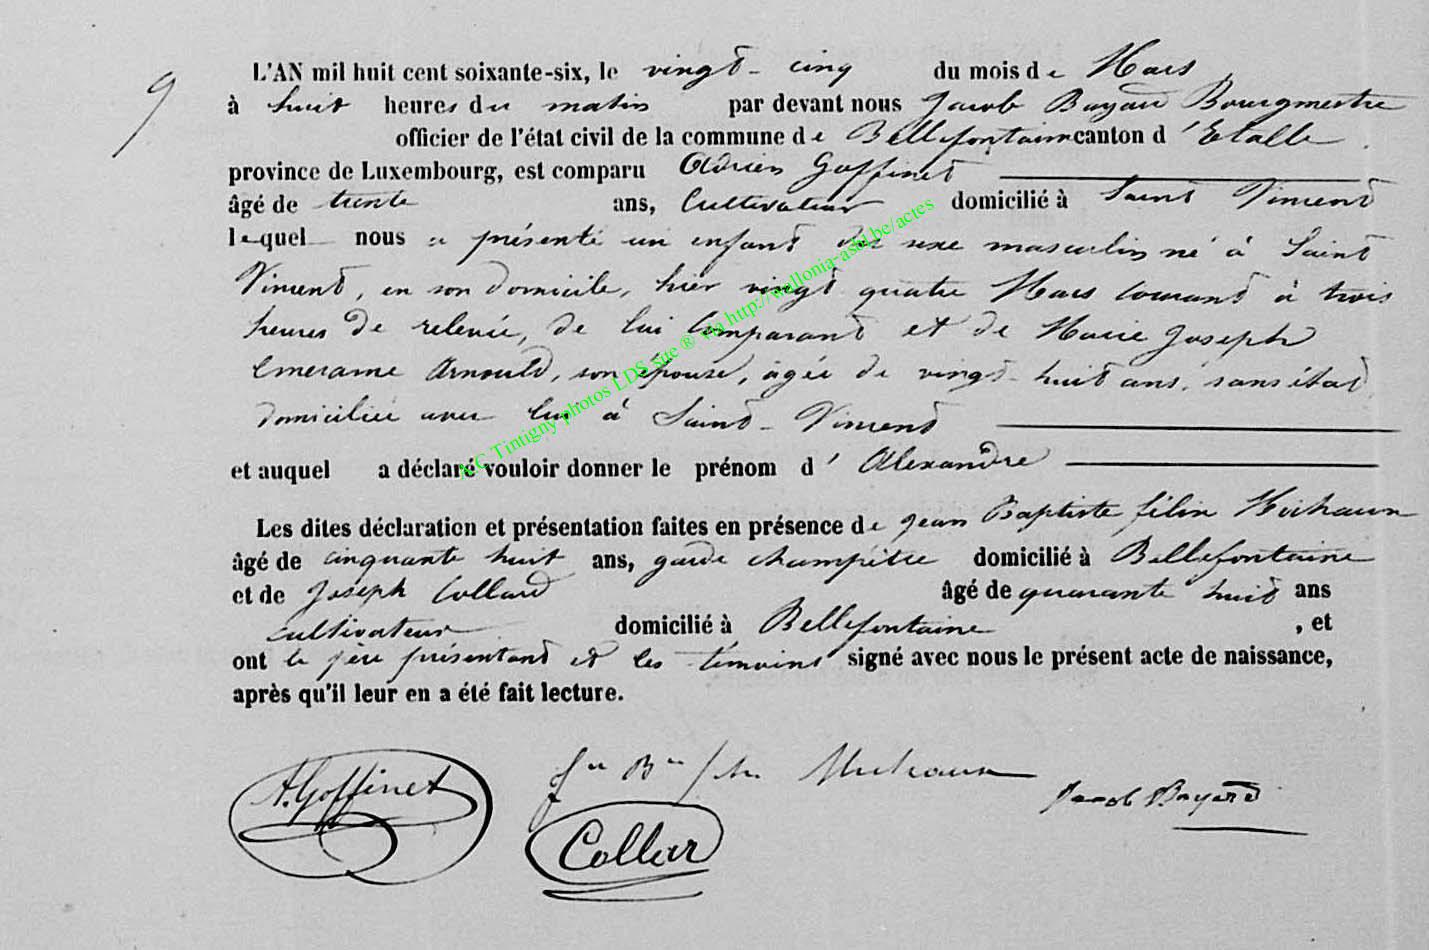 9
L'AN mil huit cent soixante-six, le vingt-cinq du mois de Mars,
à huit heures du matin par devant nous Jacob Bayard Bourgmestre
officier de l'état civil de la commune de Bellefontaine canton d'Etalle
province de Luxembourg, est comparu Adrien Goffinet
âgé de trente ans, Cultivateur domicilié à Saint Vincent
lequel nous a présenté un enfant du sexe masculin né à Saint
Vincent, en son domicile, hier vingt quatre Mars courant à trois
heures de relevée, de lui Comparant et de Marie Joseph
Emerame Arnould, son épouse, agée de vingt-huit ans, sans état
domiciliée avec lui à Saint-Vincent
et auquel a déclaré vouloir donner le prénom d'Alexandre
Les dites déclaration et présentation faites en présence de Jean Baptiste félix Michaux
âgé de cinquante huit ans, garde champêtre domicilié à Bellefontaine
et de Joseph Collard âgé de quarante huit ans
cultivateur domicilié à Bellefontaine, et
ont le père présentant et les témoins signé avec nous le présent acte de naissance,
après qu'il leur en a été fait lecture.
A. Goffinet
Michaux
Jacob Bayard
Collar
A.C Tintigny photos LDS site ® via http://wallonia-asbl.be/actes